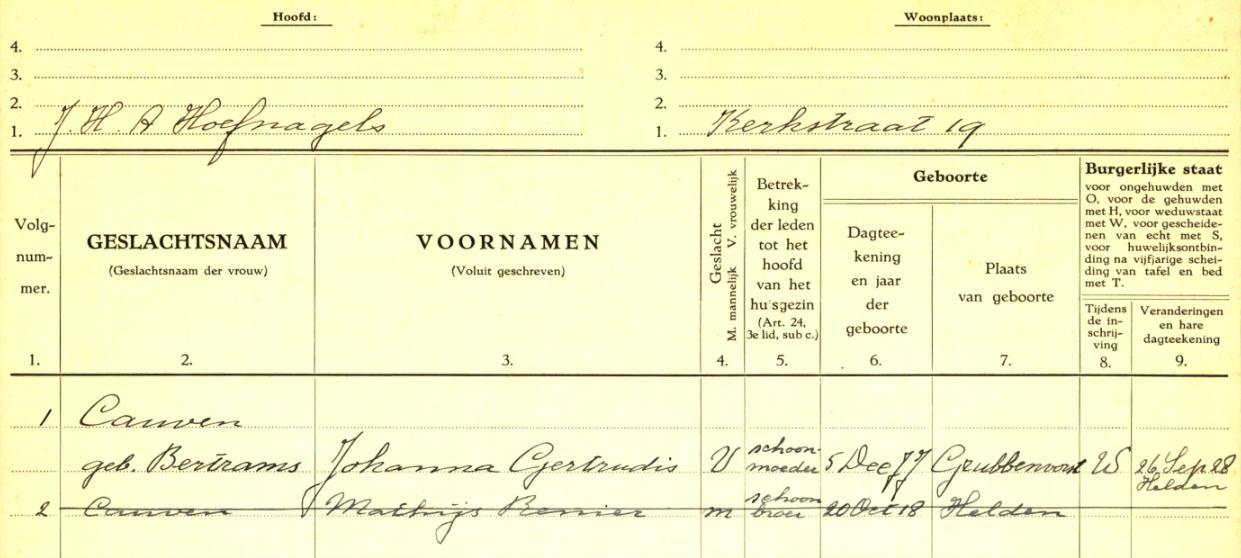 Hoofd: Woonplaats:
4. 4.
3. 3.
2. 2.
1. J. H. A Hoefnagels 1. Kerkstraat 19
Volg-
num-
mer.
1.
GESLACHTSNAAM
(Geslachtsnaam der vrouw)
2.
VOORNAMEN
(Voluit geschreven)
3.
Geslacht
M. mannelijk V. vrouwelijk
4.
Betrek-
king
der leden
tot het
hoofd
van het
hu'sgezin
(Art. 24,
3e lid, sub c.)
5.
Geboorte
Dagtee-
kening
en jaar
der
geboorte
6.
Plaats
van geboorte
7.
Burgerlijke staat
voor ongehuwden met
O, voor de gehuwden
met H, voor weduwstaat
met W, voor gescheide-
nen van echt met S,
voor huwelijksontbin-
ding na vijfjarige schei-
ding van tafel en bed
met T.
Tijdens
de in-
schrij-
ving
8.
Veranderingen
en hare
dagteekening
9.
1 Cauven
geb. Bertrams Johanna Gertrudis V schoon-
moeder 5 Dec 77 Grubbenvorst W 26 Sep 28
Helden
2 Cauven Mathijs Renier m schoon
broer 20 Oct 18 Helden